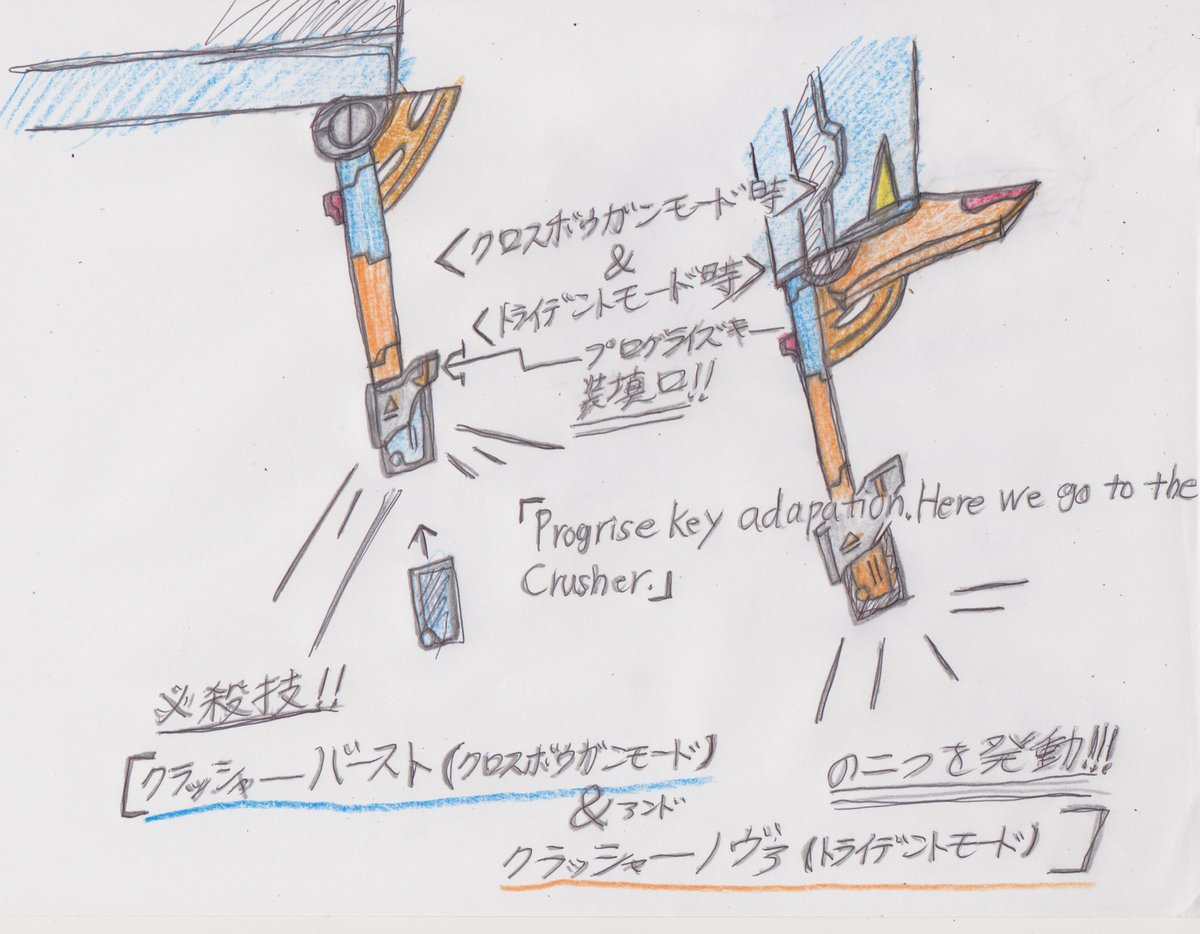 <クロスボウガンモード時>
&
<トライデントモード時>
プログライズキー
装填口!!
「Progrise key adapation.Here we go to the
Crusher.」
必殺技!!
[クラッシャーバースト(クロスボウガンモード)
&アンド
クラッシャーノヴァ(トライデントモード)]
の二つを発動!!!